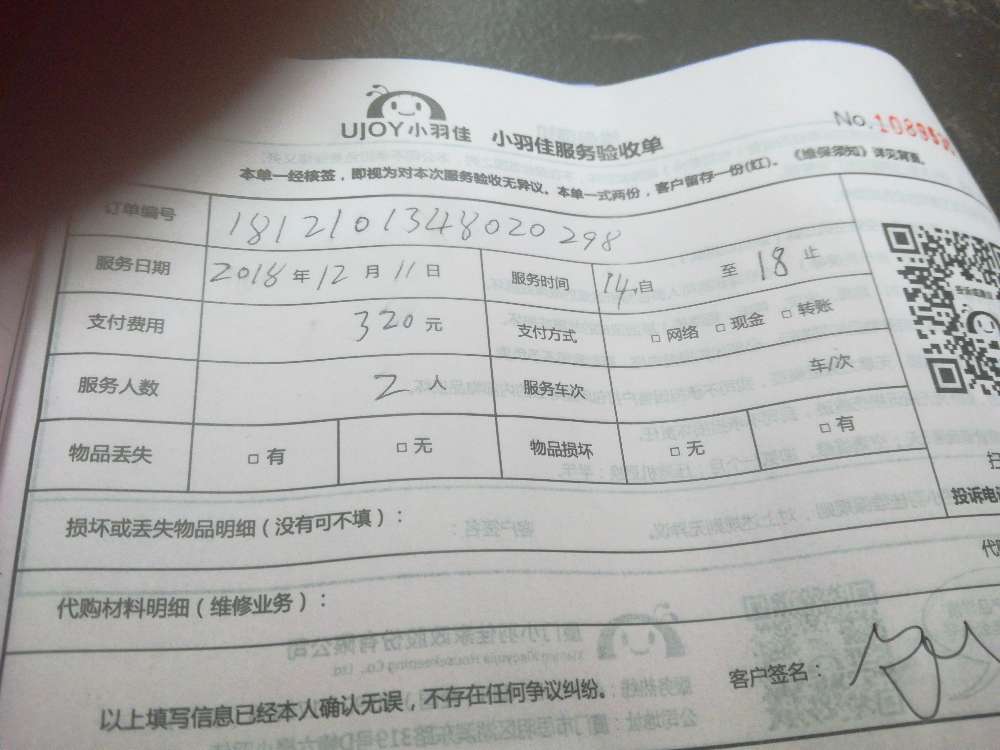 UJOY小羽佳 小羽佳服务验收单
No.108953
本单一经核签，即视为对本次服务验收无异议。本单一式两份，客户留存一份(红)。《维保须知》详见背面。
订单编号 1812101348020298
服务日期 2018年12月11日 服务时间 14自 至18止
支付费用 320元 支付方式 □网络 □现金 □转账
服务人数 2人 服务车次 车/次
物品丢失 □有 □无 物品损坏 □无 □有
投诉电
损坏或丢失物品明细（没有可不填）：
代购材料明细（维修业务）：
以上填写信息已经本人确认无误，不存在任何争议纠纷。
客户签名：